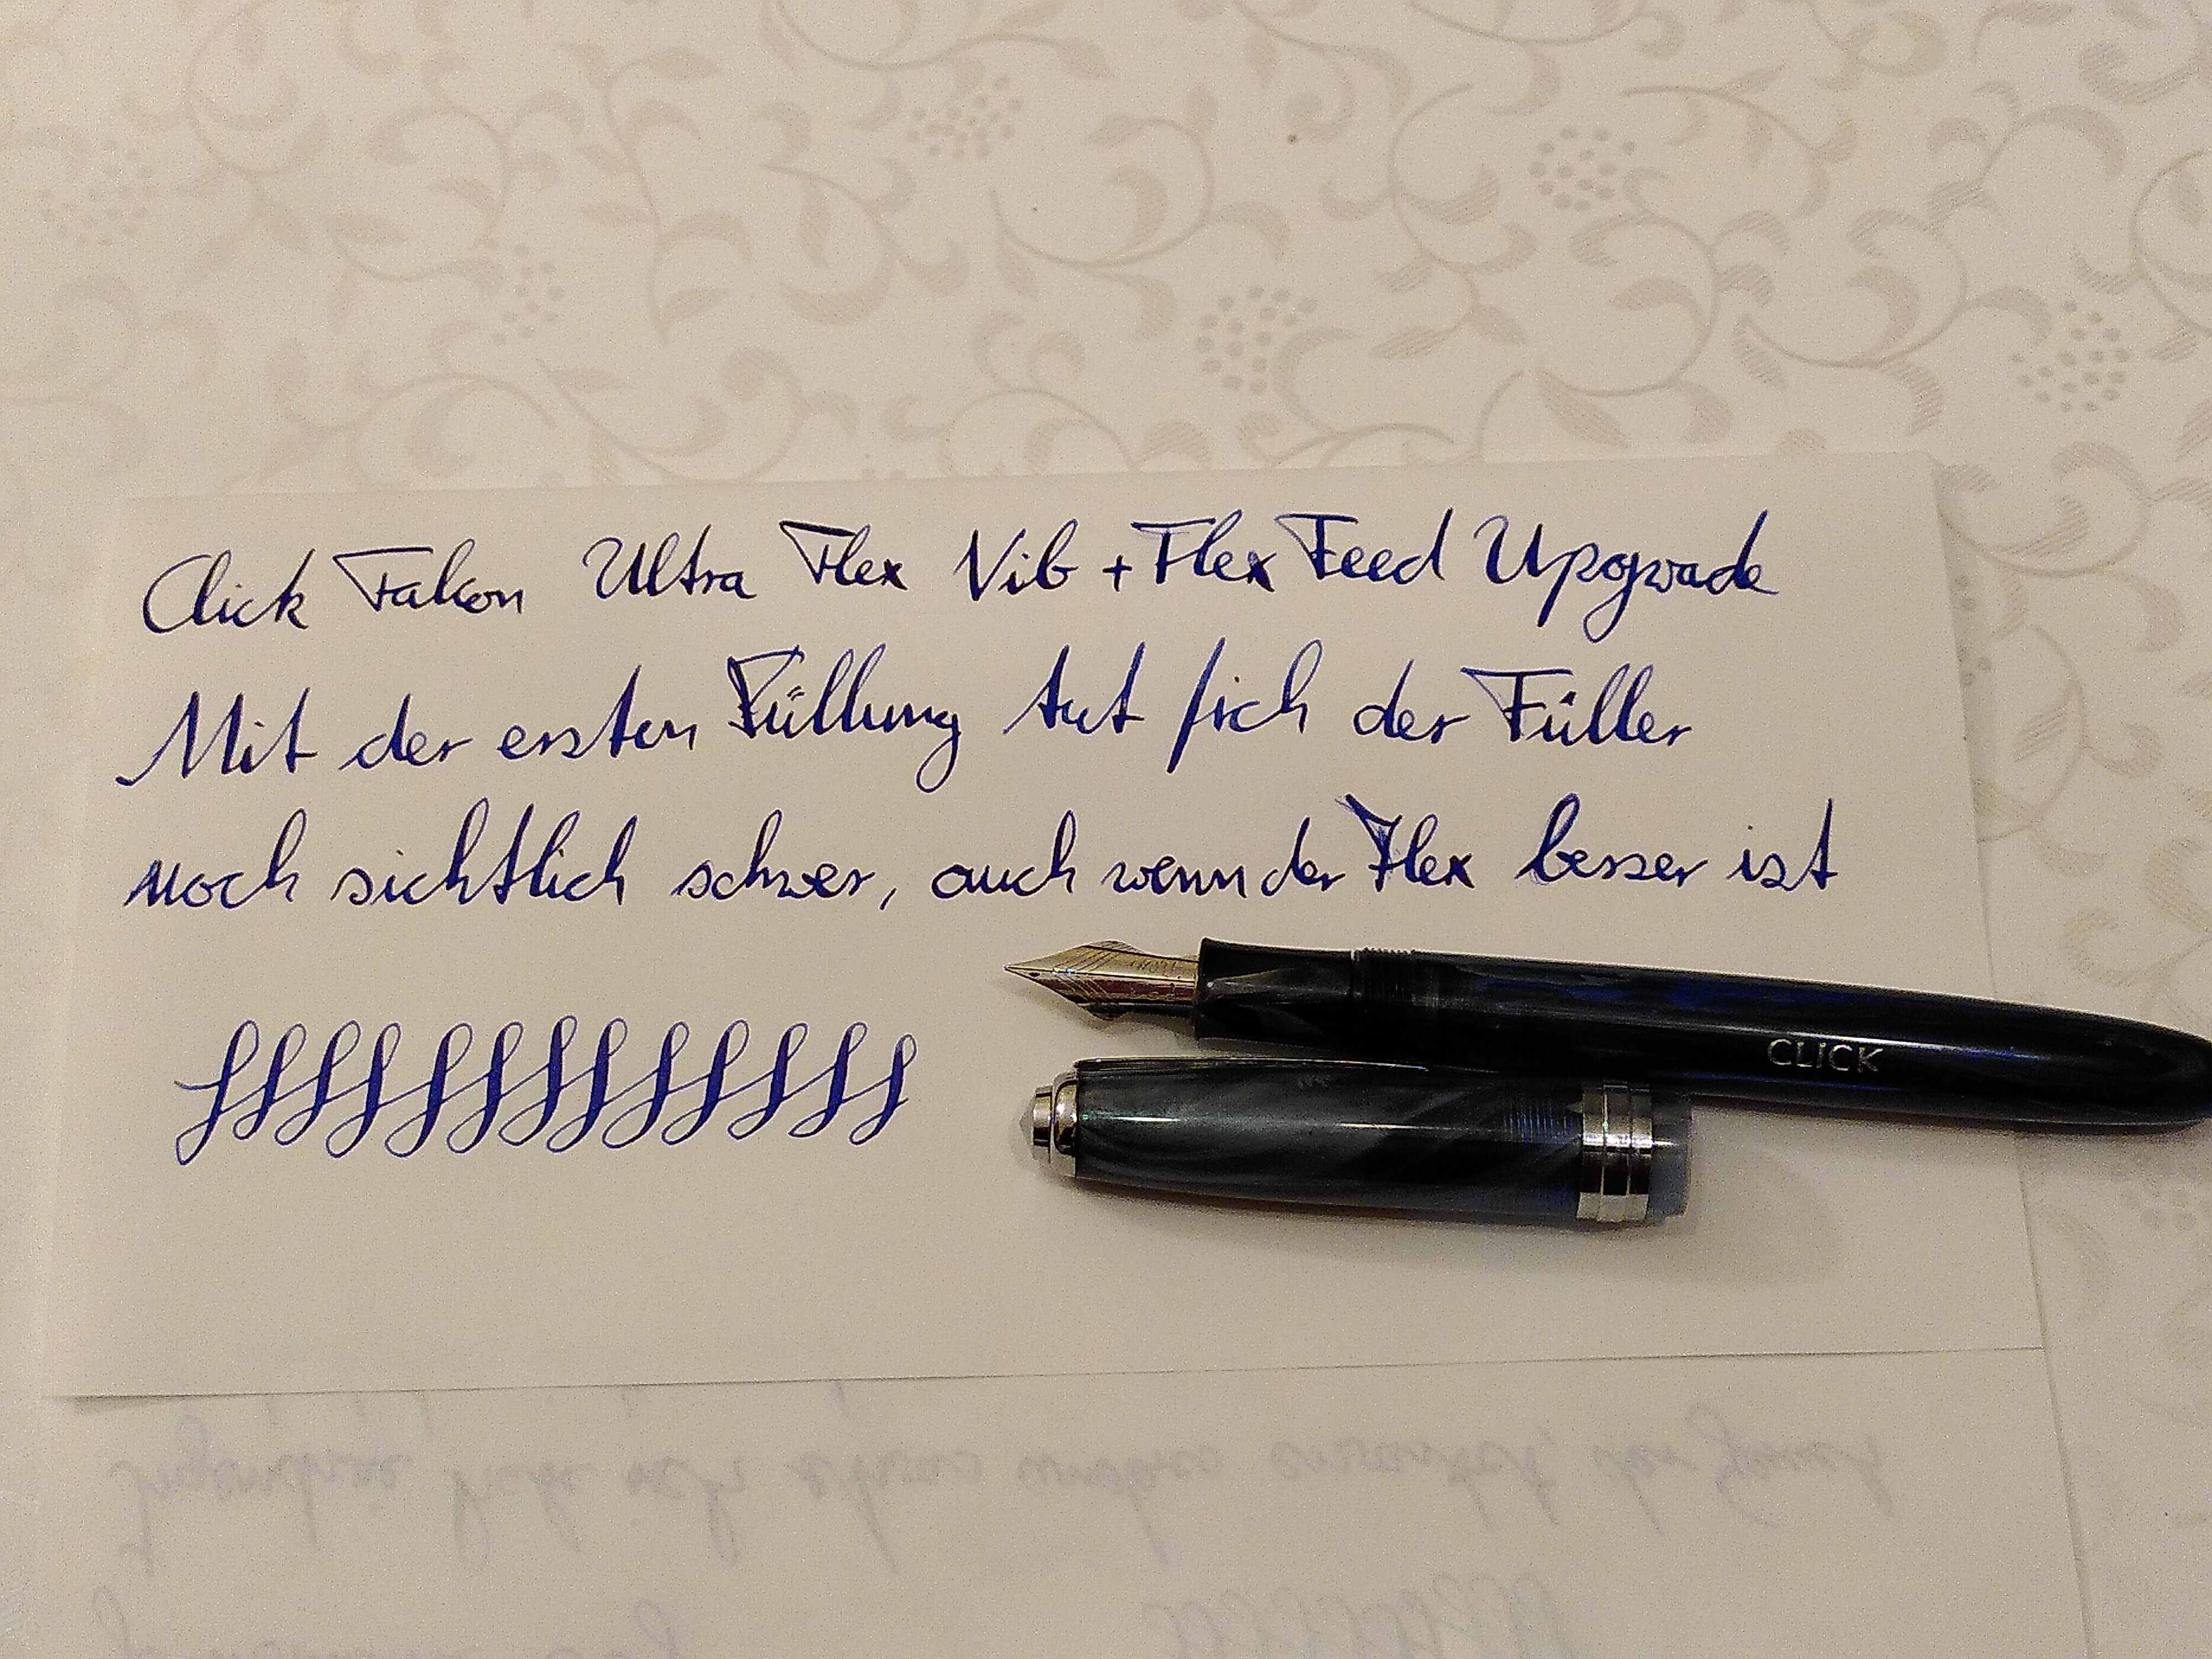 Click Falcon Ultra Flex Nib + Flex Feed Upgrade
Mit der ersten Füllung tut sich der Füller
noch sichtlich schwer, auch wenn der Flex besser ist
CLiCK